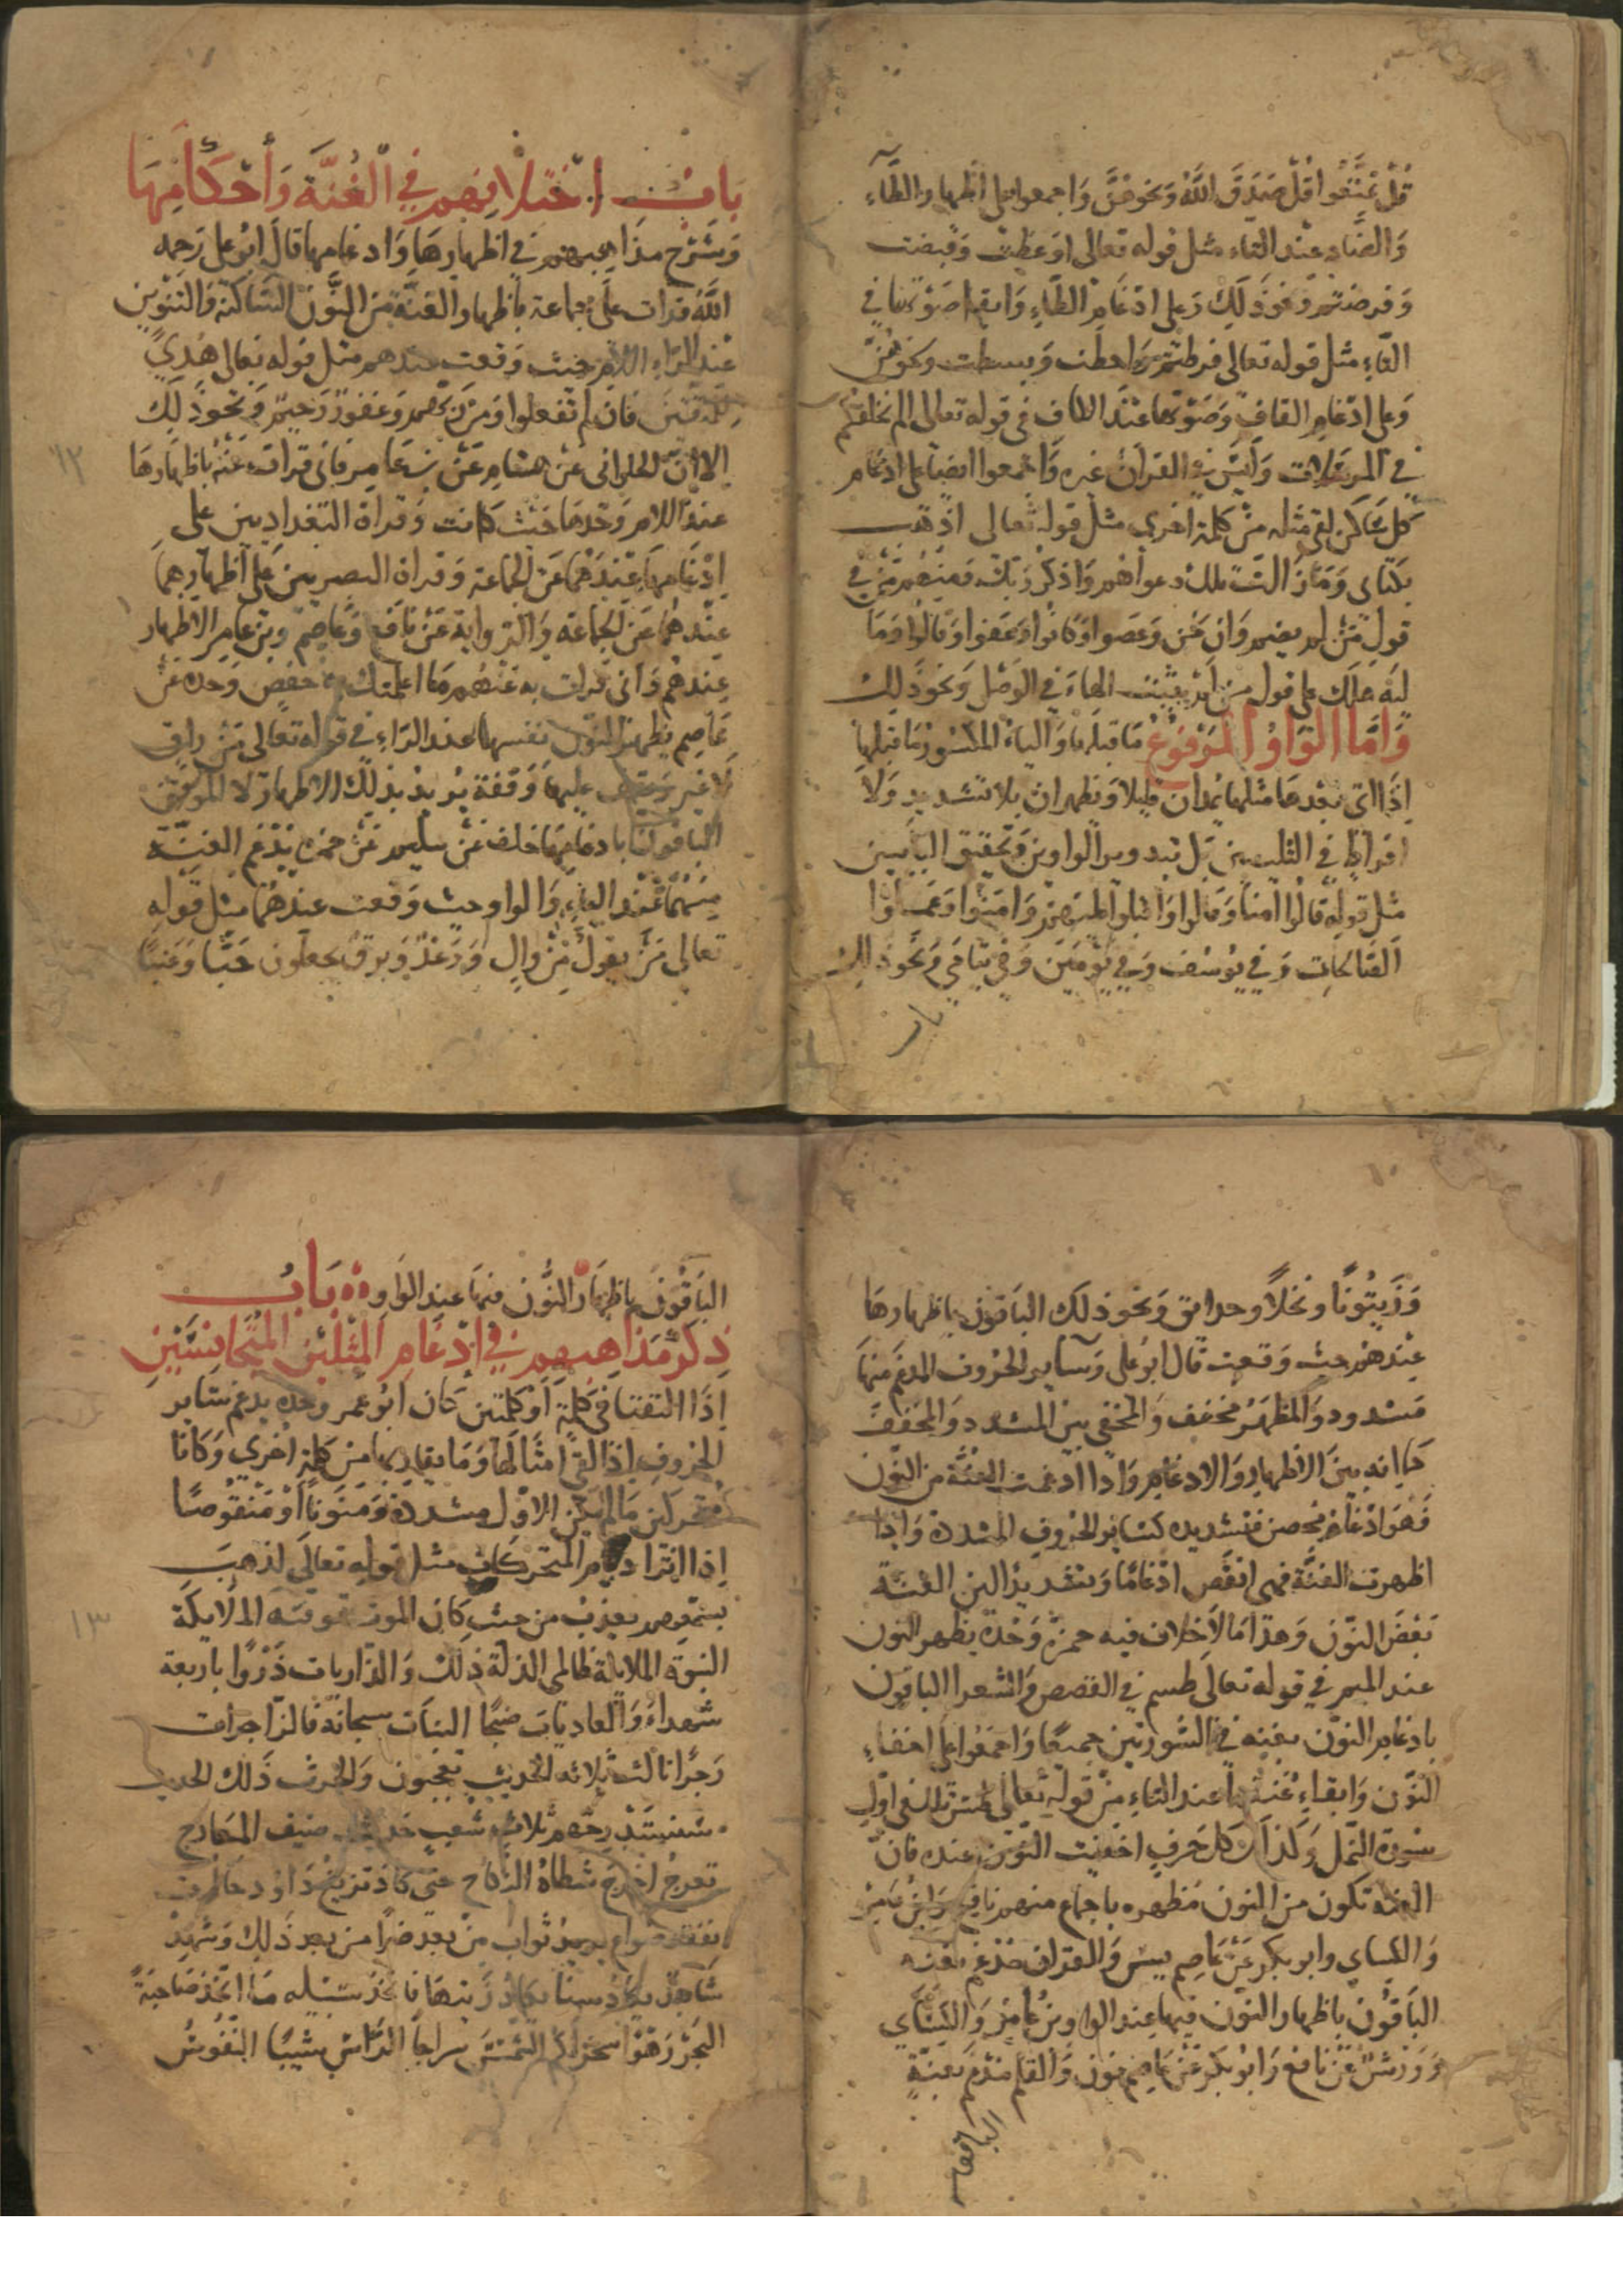 قُلْ تَمَتَّعُوا قُلْ صَدَقَ اللَّهُ وَنحوهنَّ وَاجمعوا على اظهار الظَّاءِ
وَالضَّاد عند التاء مثل قوله تعالى اوَعظت وَقبضت
وَفرضتم وَنحوذَلِكَ وَعلى ادْغَامِ الطَّاءِ وَابقاء صَوْتها في
التَّاءِ مثل قوله تعالى فرطتم وَاحطت وَبسطت ونحوهُنَّ
وَعلى ادْغامِ القاف وَصَوْتها عنْدَ الكاف فى قوله تعالى الم نخلقكم
في المرسَلات وَليسَ في القرآن غيره وَاجْمعوا ايضا على ادغام
كل سَاكن لقى مثله منْ كلمة اخرى مثل قوله تعالى اذْهَب
بكتابى وَمَا زالت تلك دعواهُم وَاذكر ربّك وَمنْهم مَّنْ في
قول مَنْ لم يضم وَان نحن وَعَصوا وَّكانُوا وَعَفوا وَّقالُوا وَمَا
ليَه هلَكَ على قول من لم يثبت الهاءَ في الوَصْل وَنحوذَلِكَ
وَامَّا الوَاوُ المَرْفُوعُ مَا قبلها وَالياءُ المكسُورُ مَا قبلها
اذَا اتى بعْدهَا مثلها يمدان قليلا وَيظهران بلا تشديد وَلَا
افراط في الثلثين بَل بتدوير الواوين وَتحقيق اليائين
مثل قوله قالُوا آمنا وَقالوا وَاقبلوا عليهم وَامنُوا وَعَملُوا
الصَّالحَات وَفي يُوسُف وَفي يَوْمَين وَفي يَتَامَى وَنَحوذَلك
بَابُ اخْتِلافِهِم فِي الْغُنَّةِ وَأَحْكَامِهَا
وَشَرْح مذَاهبهم في اظهارهَا وَادغامها قالَ ابُوعلى رَحمه
اللَّهُ قرَات على جماعة باظهار الغنَّة منَ النُّون السَّاكنة وَالتنْوين
عنْد الرَّاء اللام حيث وَقعت عندهم مثل قوله تعالى هُدًى
للمتقين فان لم تفعلوا وَمن رَّبهم وَغفورٌ رَحيمٌ وَنَحوذَلِكَ
الا انَّ الحلوانى عَنْ هشام عَنْ بن عَامر فانى قرات عَنْه باظهارهَا
عندَ اللام وَحْدهَا حيث كانت وَقراة البغداديين على
ادْغَامها عنْدَهُمَا عَن الجماعة وَقراة البصريين على اظهارهما
عنْدهُما عَن الجماعة وَالرواية عَنْ نافع وَعاصم وبن عامر الاظهار
عندهُم وَانى قرات به عَنْهم مَا اعلمتك حفص وَحده عَنْ
عَاصم يظهر النُّون نفسها عند الرَّاء في قوله تعالى مَنْ راق
لَا غير وَيقف عليها وَقفة يُريد بذلك الاظهار لا الموقف
الباقُونَ بادغامها خلف عَنْ سليم عَنْ حمزه يدْغم الغنّة
منهُما عنْد الياءِ وَالواو حيث وَقعت عندهُما مثل قوله
تعالى مَنْ يقول مِنْ وال وَرَعْدٌ وَبرق يجعلون حَبًّا وَعنبًا
١٢
وَزَيتُونًا ونَخلًا وحدائق وَنحو ذلك الباقون باظهارهَا
عنْدهُم حيث وَقعت قال ابُوعلى وَسَاير الحرُوف المدغم منها
مشدود وَالمظهَر مخفف وَالمخفى بين المشدد وَالمخفف
كما انه بينَ الاظهار وَالادغام وَاذا ادغمت الغنَّة من النُّون
فَهوَ ادْغام محض فتشديده كسَائر الحرُوف المشدده وَاذا
اظهرت الغنَّة فهى انقَص ادْغامًا وَتشديدًا لان الغنّة
بَعْضُ النّون وَهذا مَا لَا خلاف فيه حمزة وَحْده يظهر النون
عند الميم في قوله تعالى طسم في القصص وَالشعرا الباقون
بادغام النوّن بغنه في السُّورتين جميعًا وَاجمَعُوا على اخفاءِ
النوّن وَابقاء غُنتها عند التاءِ منْ قوله تعالى طس تلك في اوّل
سُورة النمل وَكذلك كل حَرف اخفيت النّون عنده فان
الغنه تكون من النون مُظهره باجماع منهم نافع وَابن عامر
وَالكساى وابو بكر عَنْ عَاصم يس وَالقرآن مدْغم بغنه
الباقُون باظهار النوّن فيها عند الواو بن عَامر وَالكسَاى
وَوَرش عَنْ نافع وَابُو بكر عَنْ عَاصم نون وَالقلم مدغم بغنّةٍ
الباقُونَ
البَاقُونَ باظهار النُّون فيهَا عند الوَاو بَابُ
ذِكْرِ مَذَاهِبِهِمْ فِي إِدْغَامِ الْمِثْلَيْنِ الْمُتَجَانِسَيْنِ
اذَا التقتا في كلمَة أو كلمتين كان ابُوعمر وحده يدغم سَاير
الحروف اذا لقى امثالها وَمَا يقاربها من كلمة اخرى وَكانا
متحركين مَا لم يكن الاوّل مشددة وَمنوَنًا اوْ مَنْقُوصًا
مثل قوله تعالَى لذهبَ
بسمْعهم يعذبُ من حيث كان الموت تتوفته الملايكة
النبوّة الملايكة ظالمى الذلة ذلك وَالذاريات ذَرْوًا باربعة
شهداءَ وَالعاديات ضبحًا البنات سبحانَه فالزاجرات
زَجرًا ثالث ثلاثه الحديث تعجبون وَالحرث ذَلك الحديث
سنستَدْرجهم ثلاث شعب حديث ضيف المعارج
تعرجُ اخرَجَ شطأهُ النكاح حتى كاد تزيغ دَاود جالوت
نفقد صواع يريدُ ثواب منْ بَعد ضرَّا من بعد ذَلِك وَشهدْ
شَاهد يكادُ سنا يكادُ زَيتها فاتخذ سَبيله مَا اتخذ صَاحبَةً
البحْرَ رَهوًا سخر لكم الشّمسَ سراجًا الرّاسُ شيبًا النفُوسُ
١٣